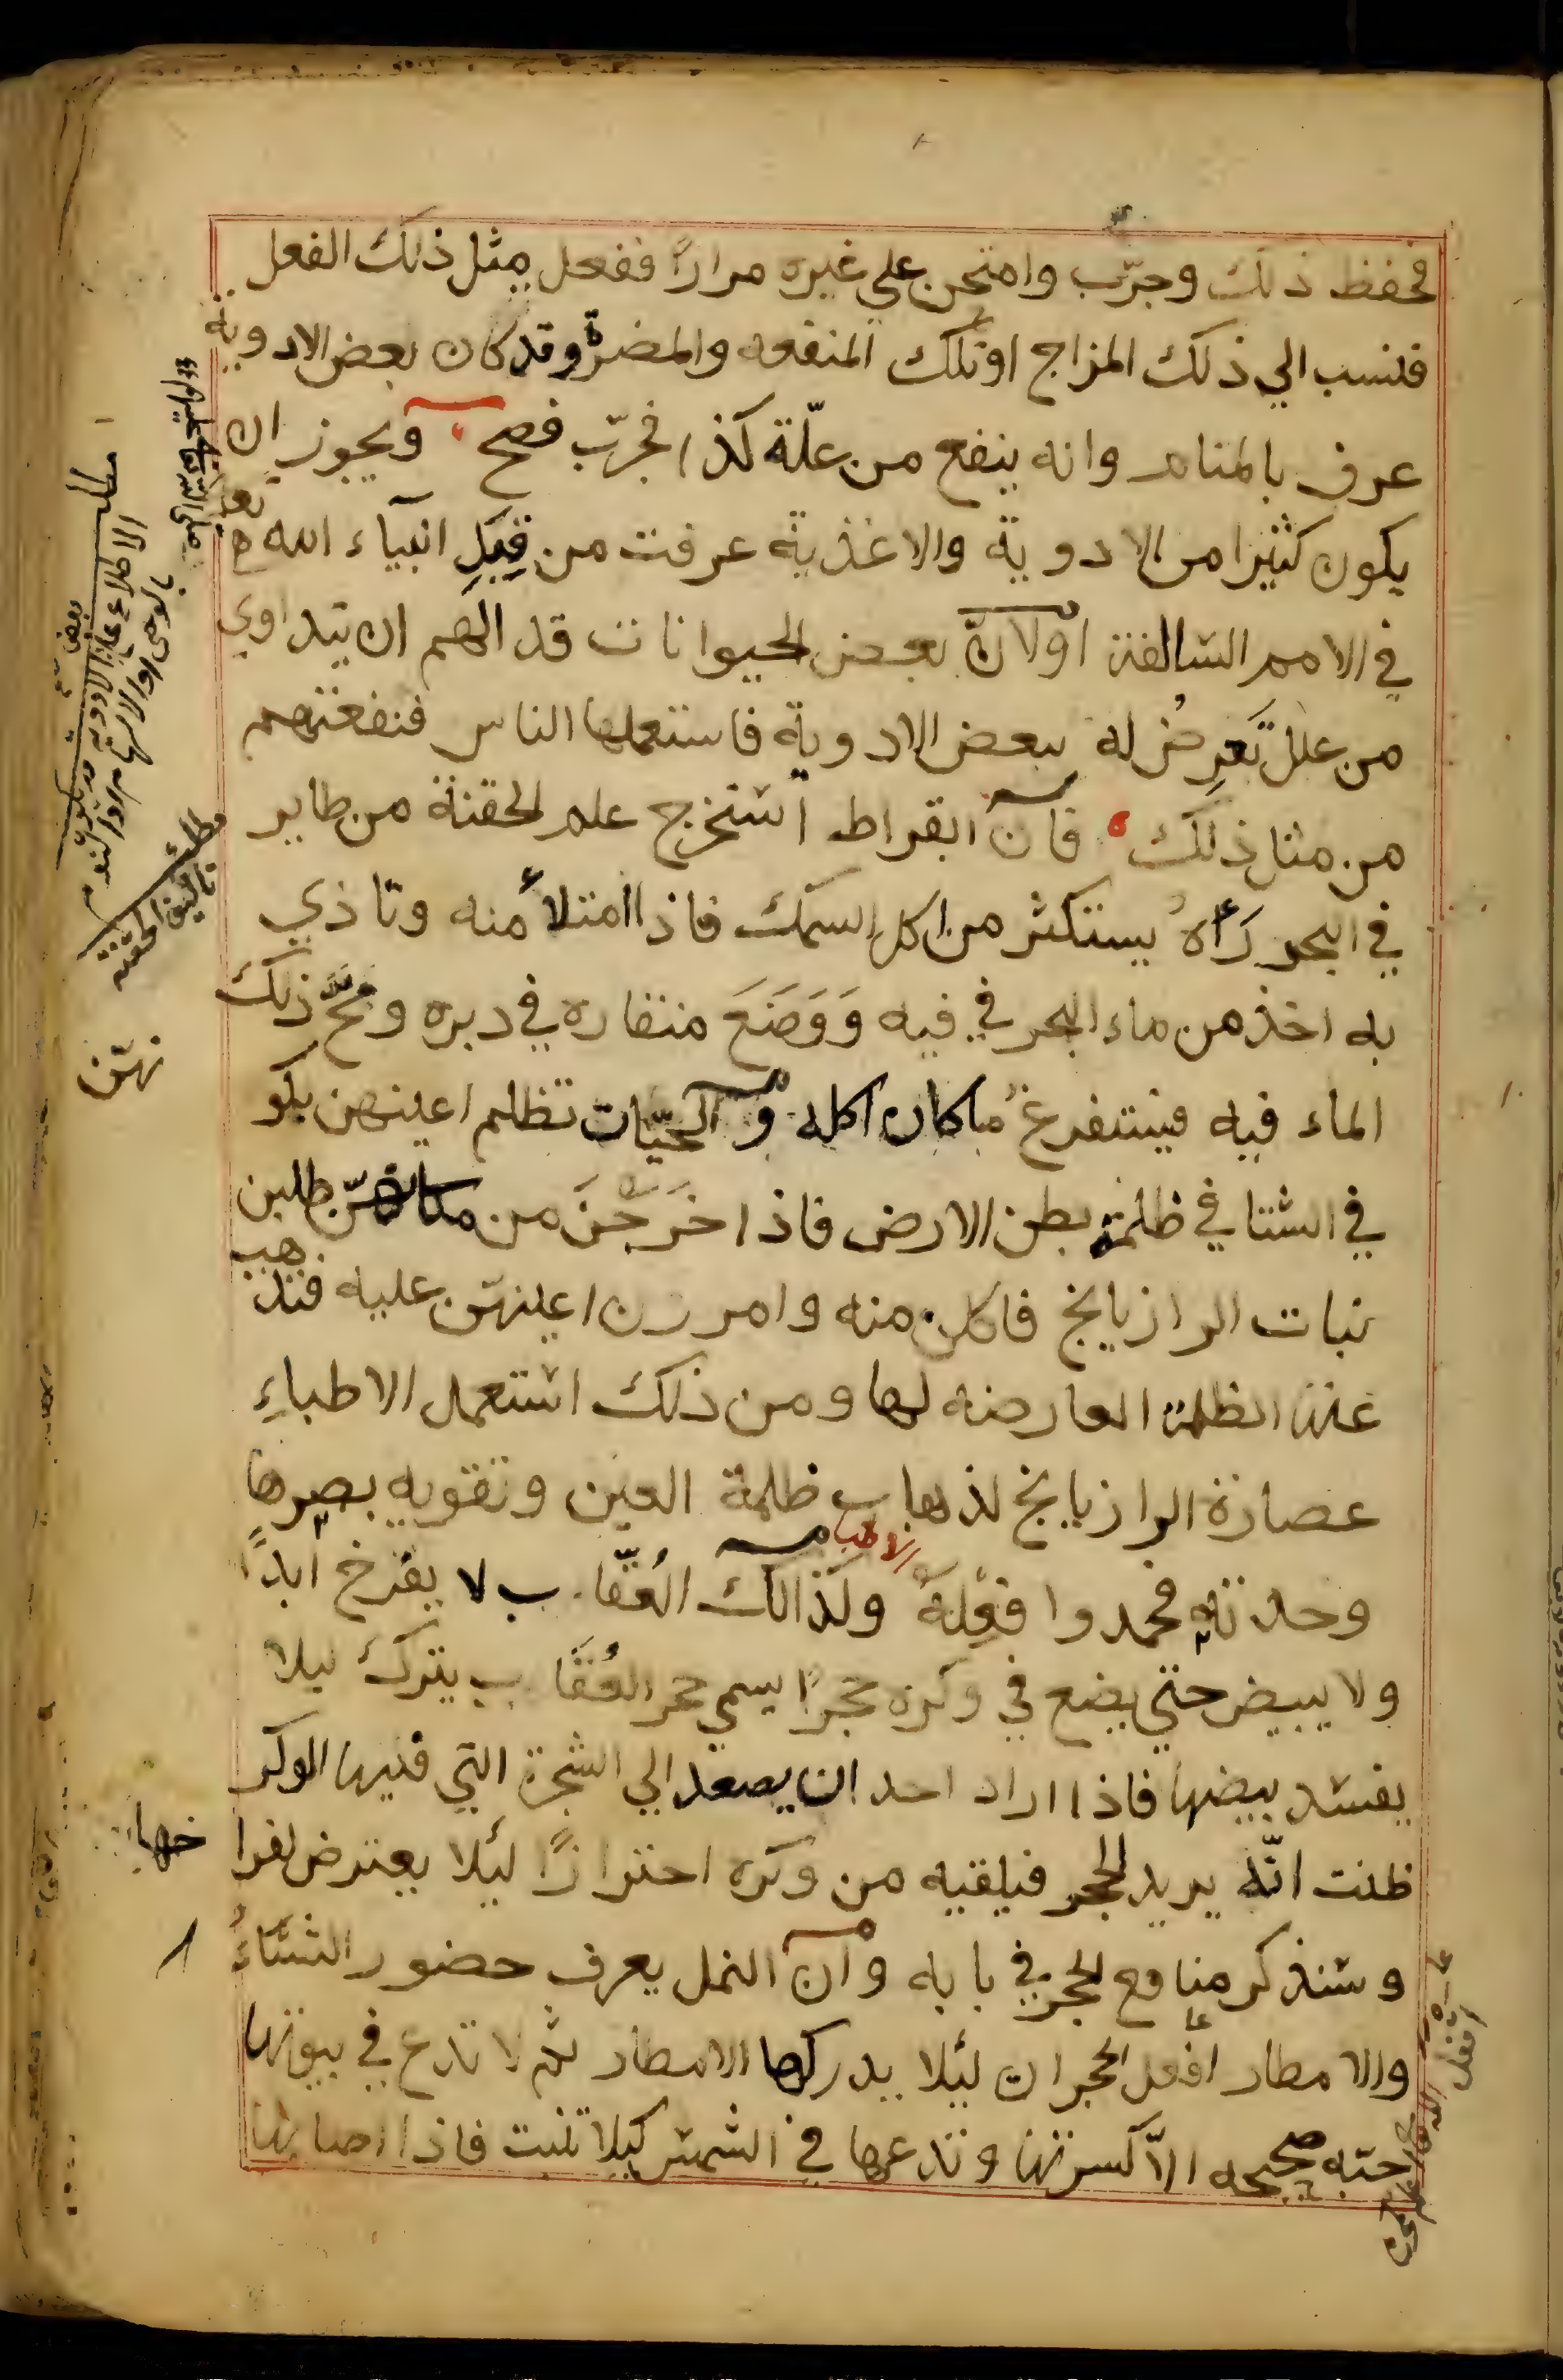 فحفظ ذلك وجرّب وامتحن علي غيره مرارًا ففعل مثل ذلك الفعل
فنسب الي ذلك المزاج او تلك المنفعه والمضرة وقد كان بعض الادوية
عرف بالمنام وانه ينفع من علّة كذا فجرّب فصح ويجوز ان
يكون كثيرا من الادوية والاغذية عرفت من قِبَلِ انبيآء الله
في الامم السالفة اولانّ بعض الحيوانات قد الهم ان يتداوي
من علل تَعرِضُ له ببعض الادوية فاستعملها الناس فنفعتهم
من مثل ذلك فان ابقراط استخرج علم الحقنة من طاير
في البحر رَأهُ يستكثر من اكل السمك فاذا امتلأ منه وتاذي
به اخذ من ماء البحر في فيه وَوَضَعَ منقاره في دبره ومجّ ذلك
الماء فيه فيستفرغ ماكان اكله والحيّات تظلم اعينهن
في الشتا في ظلمة بطن الارض فاذا خَرَجْنَ من مكانهنّ طلبن
نبات الرازيانج فاكلن منه وامررن اعينهنّ عليه فتذهب
عنهن الظلمة العارضه لها ومن ذلك استعمل الاطباءِ
عصارة الرازيانج لذهاب ظلمة العين وتقويه بصرها
وحدته فحمدوا فِعْلَهُ ولذالك العُقَاب لا يفرخ ابدًا
ولا يبيض حتي يضع في وكره حجرًا يسمي حجر العُقَاب يترك ليلا
يفسد بيضها فاذا اراد احد ان يصعد الي الشجرة التي فيها الوكر
ظنت انّه يريد الحجر فيلقيه من وكره احترازًا ليلا يعترض لفرا
خها
وسنذكر منافع الحجر في بابه وان النمل يعرف حضور الشتَآءُ
والامطار افعل الحجران ليلا يدركها الامطار ثم لا تدع في بيوتها
حبه صحيحه الاّ كسرتها وتدعها في الشمس كيلا تنبت فاذا اصابها
مطلب
الاطلاع على بعض الادوية
بالوحي او الالهام او النوم
مطلب
تاليف الحقنة